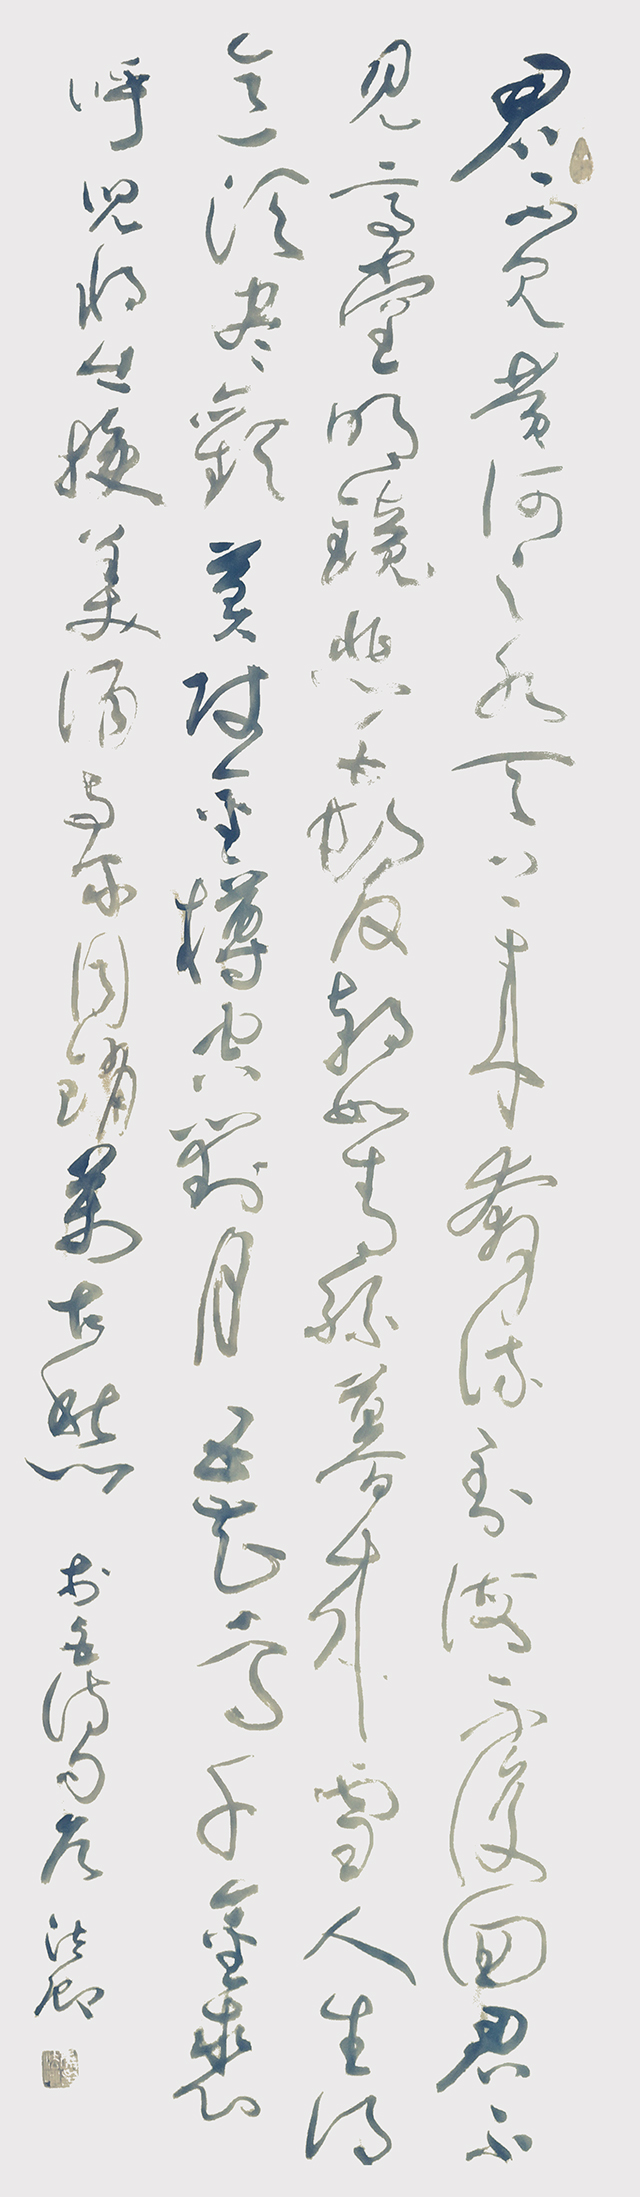 君不見黃河之水天上來奔流到海不復回君不
見高堂明鏡悲白髮朝如青絲暮成雪人生得
意須盡歡莫使金樽空對月五花馬千金裘
呼兒將出換美酒與爾同銷萬古愁 李白詩句